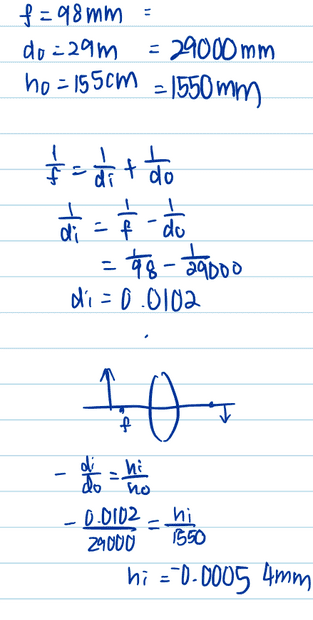 f = 98mm =
do = 29m = 29000mm
ho = 155cm = 1550mm
1/f = 1/di + 1/do
1/di = 1/f - 1/do
= 1/98 - 1/29000
di = 0.0102
f
- di/do = hi/ho
- 0.0102/29000 = hi/1550
hi = -0.0005 4mm